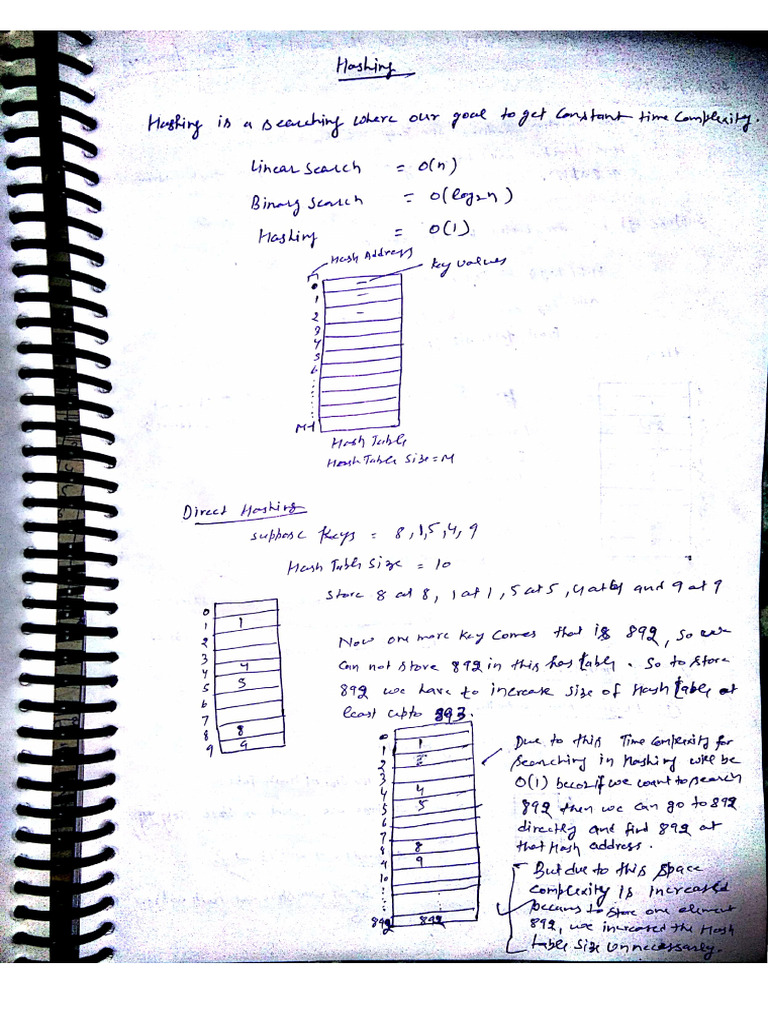 Hashing
Hashing is a searching where our goal to get Constant time Complexity.
Linear Search = O(n)
Binary Search = O(log2n)
Hashing = O(1)
Hash Address
Key values
0
1
2
3
4
5
6
M-1
Hash Table
Hash Table Size = M
Direct Hashing
Suppose Keys = 8,1,5,4,9
Hash Table Size = 10
Store 8 at 8, 1 at 1, 5 at 5, 4 at 4 and 9 at 9
0
1 1
2
3
4 4
5 5
6
7
8 8
9 9
Now one more key comes that is 892, so we
can not store 892 in this has table. So to store
892 we have to increase size of Hash table at
least upto 893.
0
1 1
2
3
4 4
5 5
6
7
8 8
9
10
892 892
Due to this Time Complexity for
Searching in Hashing will be
O(1) becoz if we want to search
892 then we can go to 892
directly and find 892 at
that Hash address.
But due to this space
complexity is increased
to store one element
892, we increased the Hash
table size unnecessarly.